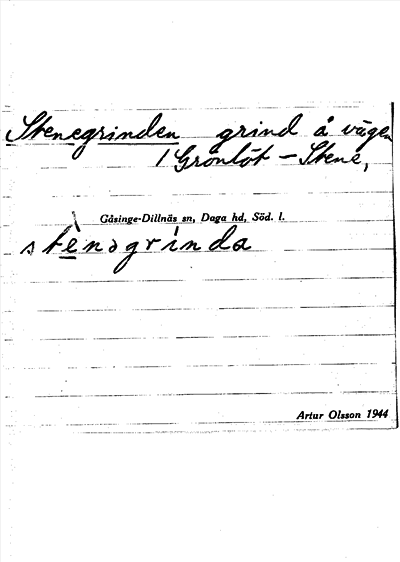 Stenegrinden grind å vägen
/ Grönlöt – Stene,
Gåsinge-Dillnäs sn, Daga hd, Söd. l.
stènəgrinda
Artur Olsson 1944